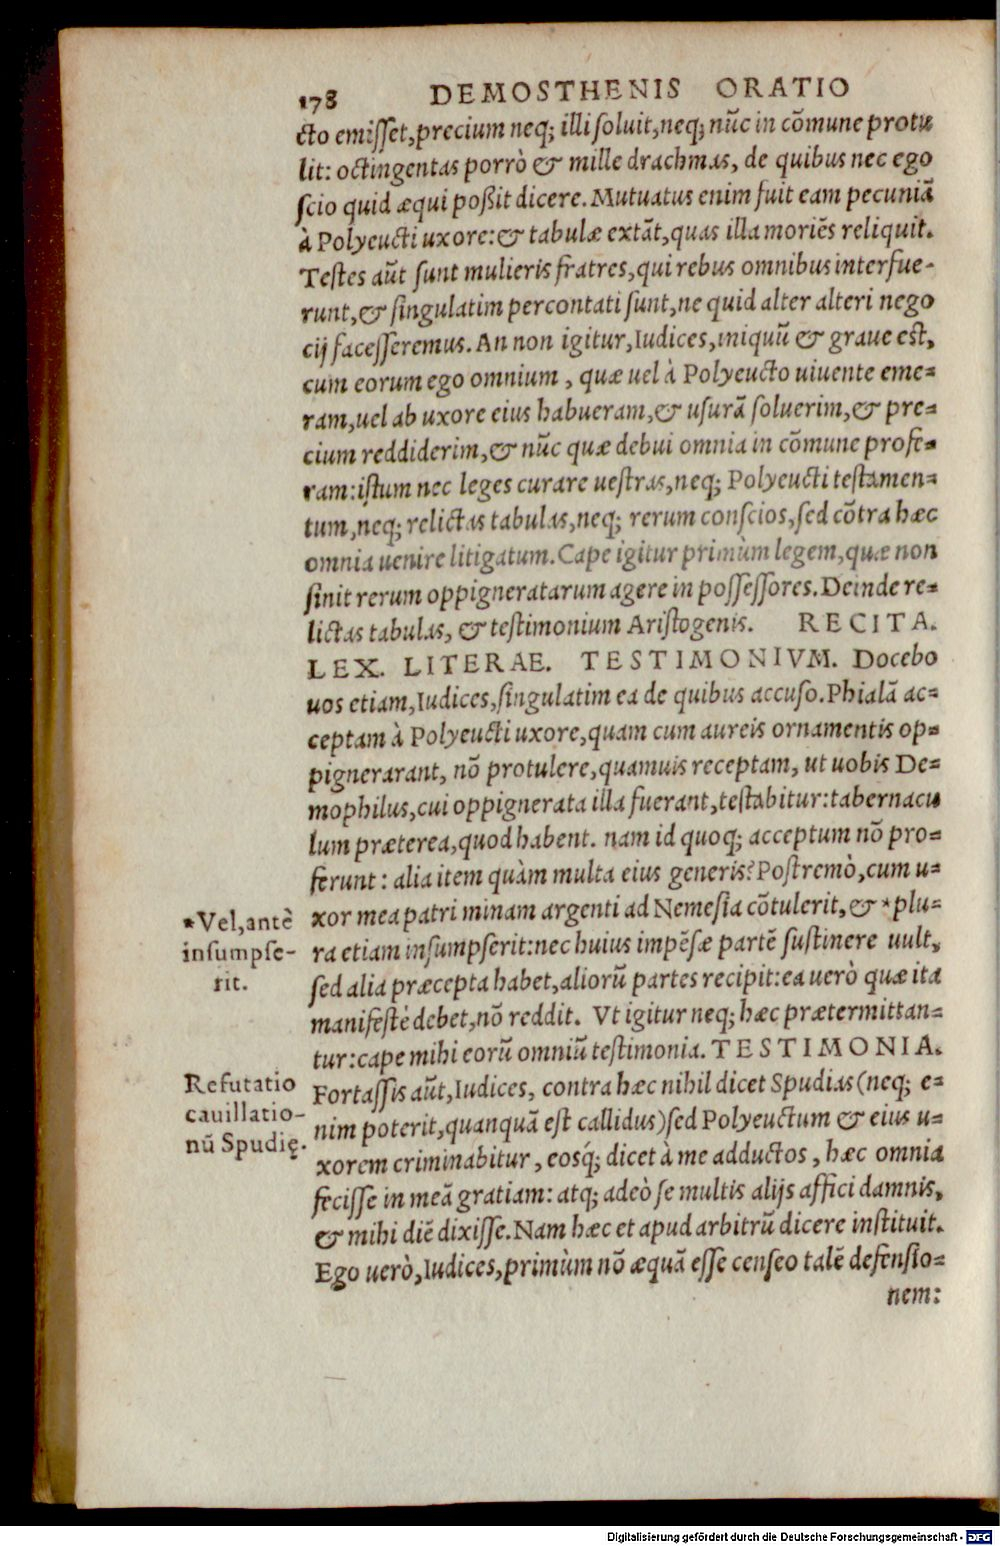 178 DEMOSTHENIS ORATIO
cto emisset, precium neq; illi soluit, neq; nūc in cōmune protu
lit: octingentas porrò & mille drachmas, de quibus nec ego
scio quid æqui poßit dicere. Mutuatus enim fuit eam pecuniā
à Polyeucti uxore: & tabulæ extāt, quas illa moriēs reliquit.
Testes aūt sunt mulieris fratres, qui rebus omnibus interfue-
runt, & singulatim percontati sunt, ne quid alter alteri nego
cij facesseremus. An non igitur, Iudices, iniquū & graue est,
cum eorum ego omnium, quæ uel à Polyeucto uiuente eme=
ram, uel ab uxore eius habueram, & usurā soluerim, & pre=
cium reddiderim, & nūc quæ debui omnia in cōmune profe=
ram: istum nec leges curare uestras, neq; Polyeucti testamen=
tum, neq; relictas tabulas, neq; rerum conscios, sed cōtra hæc
omnia uenire litigatum. Cape igitur primùm legem, quæ non
sinit rerum oppigneratarum agere in possessores. Deinde re=
lictas tabulas, & testimonium Aristogenis. RECITA.
LEX. LITERAE. TESTIMONIVM. Docebo
uos etiam, Iudices, singulatim ea de quibus accuso. Phialā ac=
ceptam à Polyeucti uxore, quam cum aureis ornamentis op=
pignerarant, nō protulere, quamuis receptam, ut uobis De=
mophilus, cui oppignerata illa fuerant, testabitur: tabernacu
lum præterea, quod habent. nam id quoq; acceptum nō pro=
ferunt: alia item quàm multa eius generis? Postremò, cum u=
xor mea patri minam argenti ad Nemesia cōtulerit, & *plu=
ra etiam insumpserit: nec huius impēsæ partē sustinere uult,
sed alia præcepta habet, aliorū partes recipit: ea uerò quæ ita
manifestè debet, nō reddit. Vt igitur neq; hæc prætermittan=
tur: cape mihi eorū omniū testimonia. TESTIMONIA.
Fortassis aūt, Iudices, contra hæc nihil dicet Spudias (neq; e=
nim poterit, quanquā est callidus) sed Polyeuctum & eius u=
xorem criminabitur, eosq́; dicet à me adductos, hæc omnia
fecisse in meā gratiam: atq; adeò se multis alijs affici damnis,
& mihi diē dixisse. Nam hæc et apud arbitrū dicere instituit.
Ego uerò, Iudices, primùm nō æquā esse censeo talē defensio=
nem:
*Vel, antè
insumpse-
rit.
Refutatio
cauillatio-
nū Spudię.
Digitalisierung gefördert durch die Deutsche Forschungsgemeinschaft - DFG